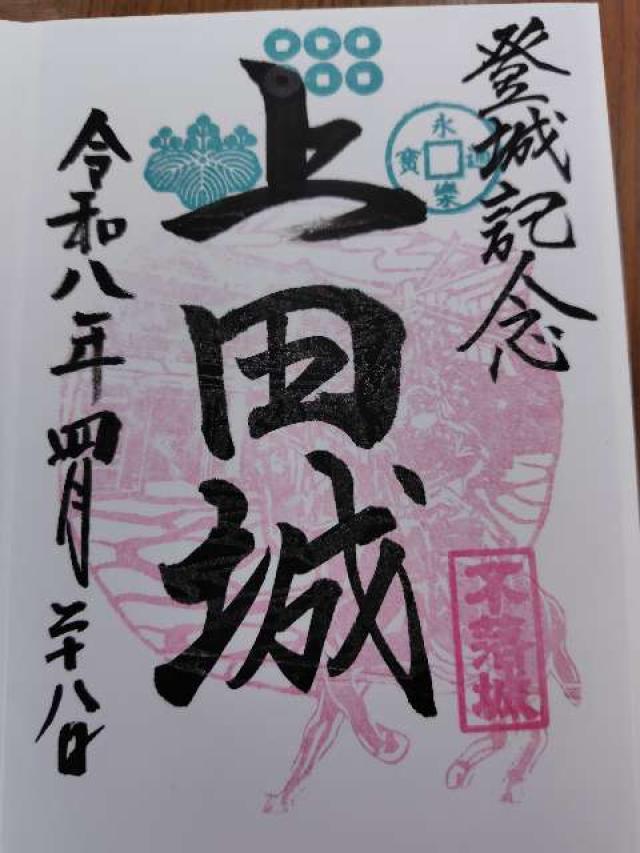 登城記念
永樂通寳
上田城
不落城
令和八年四月二十八日